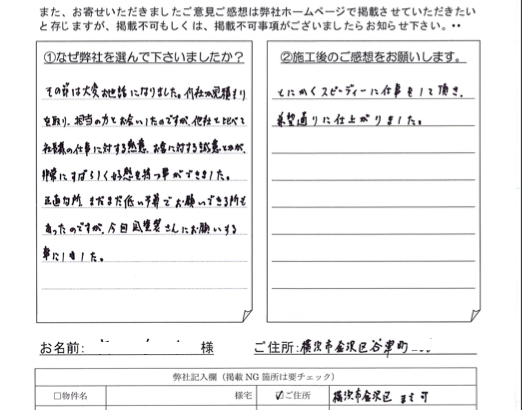 また、お寄せいただきましたご意見ご感想は弊社ホームページで掲載させていただきたい
と存じますが、掲載不可もしくは、掲載不可事項がございましたらお知らせ下さい。••
①なぜ弊社を選んで下さいましたか？
その節は大変お世話になりました。他社の見積もり
を取り、担当の方とお会いしたのですが、他社と比べて
社長様の仕事に対する熱意、お客に対する誠意とかが、
非常にすばらしく好感を持つ事ができました。
正直な所、まだまだ低い予算でお願いできる所も
あったのですが、今回 塗装さんにお願いする
事にしました。
②施工後のご感想をお願いします。
とにかくスピーディーに仕事をして頂き、
希望通りに仕上がりました。
お名前： 様
ご住所：横浜市金沢区谷津町
弊社記入欄（掲載 NG 箇所は要チェック）
□物件名 様宅
☑ご住所 横浜市金沢区 まで可